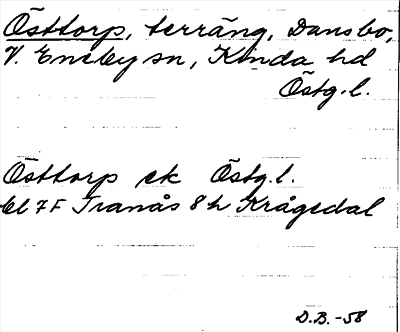 Östtorp, terräng, Dansbo,
V. Eneby sn, Kinda hd
Östg.l.
Östtorp ek Östg.l.
bl 7F Tranås 8 h Krågedal
D.B.-58